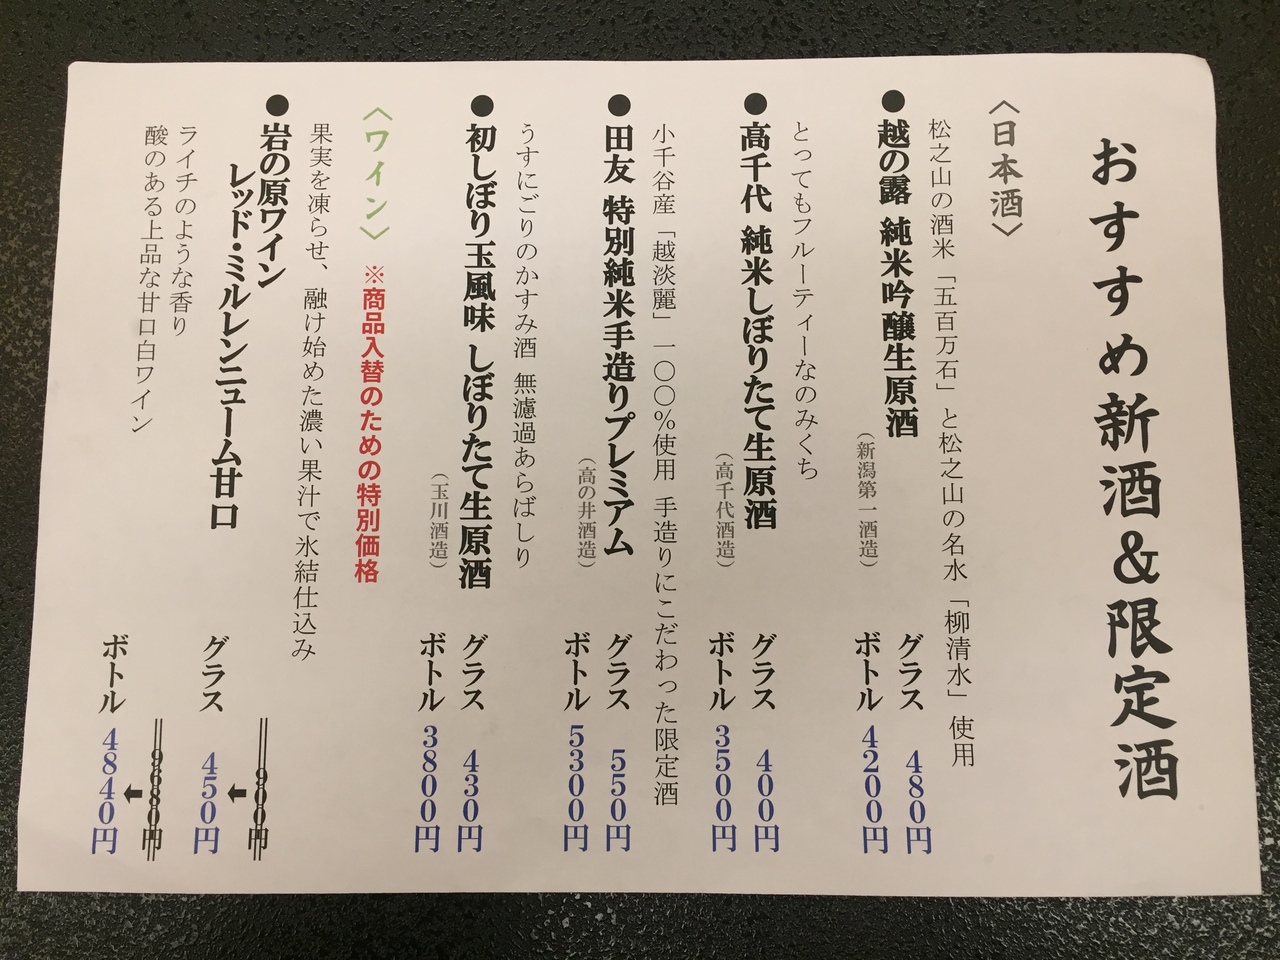 おすすめ新酒&限定酒
〈日本酒〉
松之山の酒米「五百万石」と松之山の名水「柳清水」使用
●越の露 純米吟醸生原酒
（新潟第一酒造）
グラス 480円
ボトル 4200円
とってもフルーティーなのみくち
●高千代 純米しぼりたて生原酒
（高千代酒造）
グラス 400円
ボトル 3500円
小千谷産「越淡麗」一〇〇%使用 手造りにこだわった限定酒
●田友 特別純米手造りプレミアム
（高の井酒造）
グラス 550円
ボトル 5300円
うすにごりのかすみ酒 無濾過あらばしり
●初しぼり玉風味 しぼりたて生原酒
（玉川酒造）
グラス 430円
ボトル 3800円
〈ワイン〉 ※商品入替のための特別価格
果実を凍らせ、融け始めた濃い果汁で氷結仕込み
●岩の原ワイン
レッド・ミルレンニューム甘口
ライチのような香り
酸のある上品な甘口白ワイン
900円
グラス ⬅ 450円
9680円
ボトル ⬅ 4840円